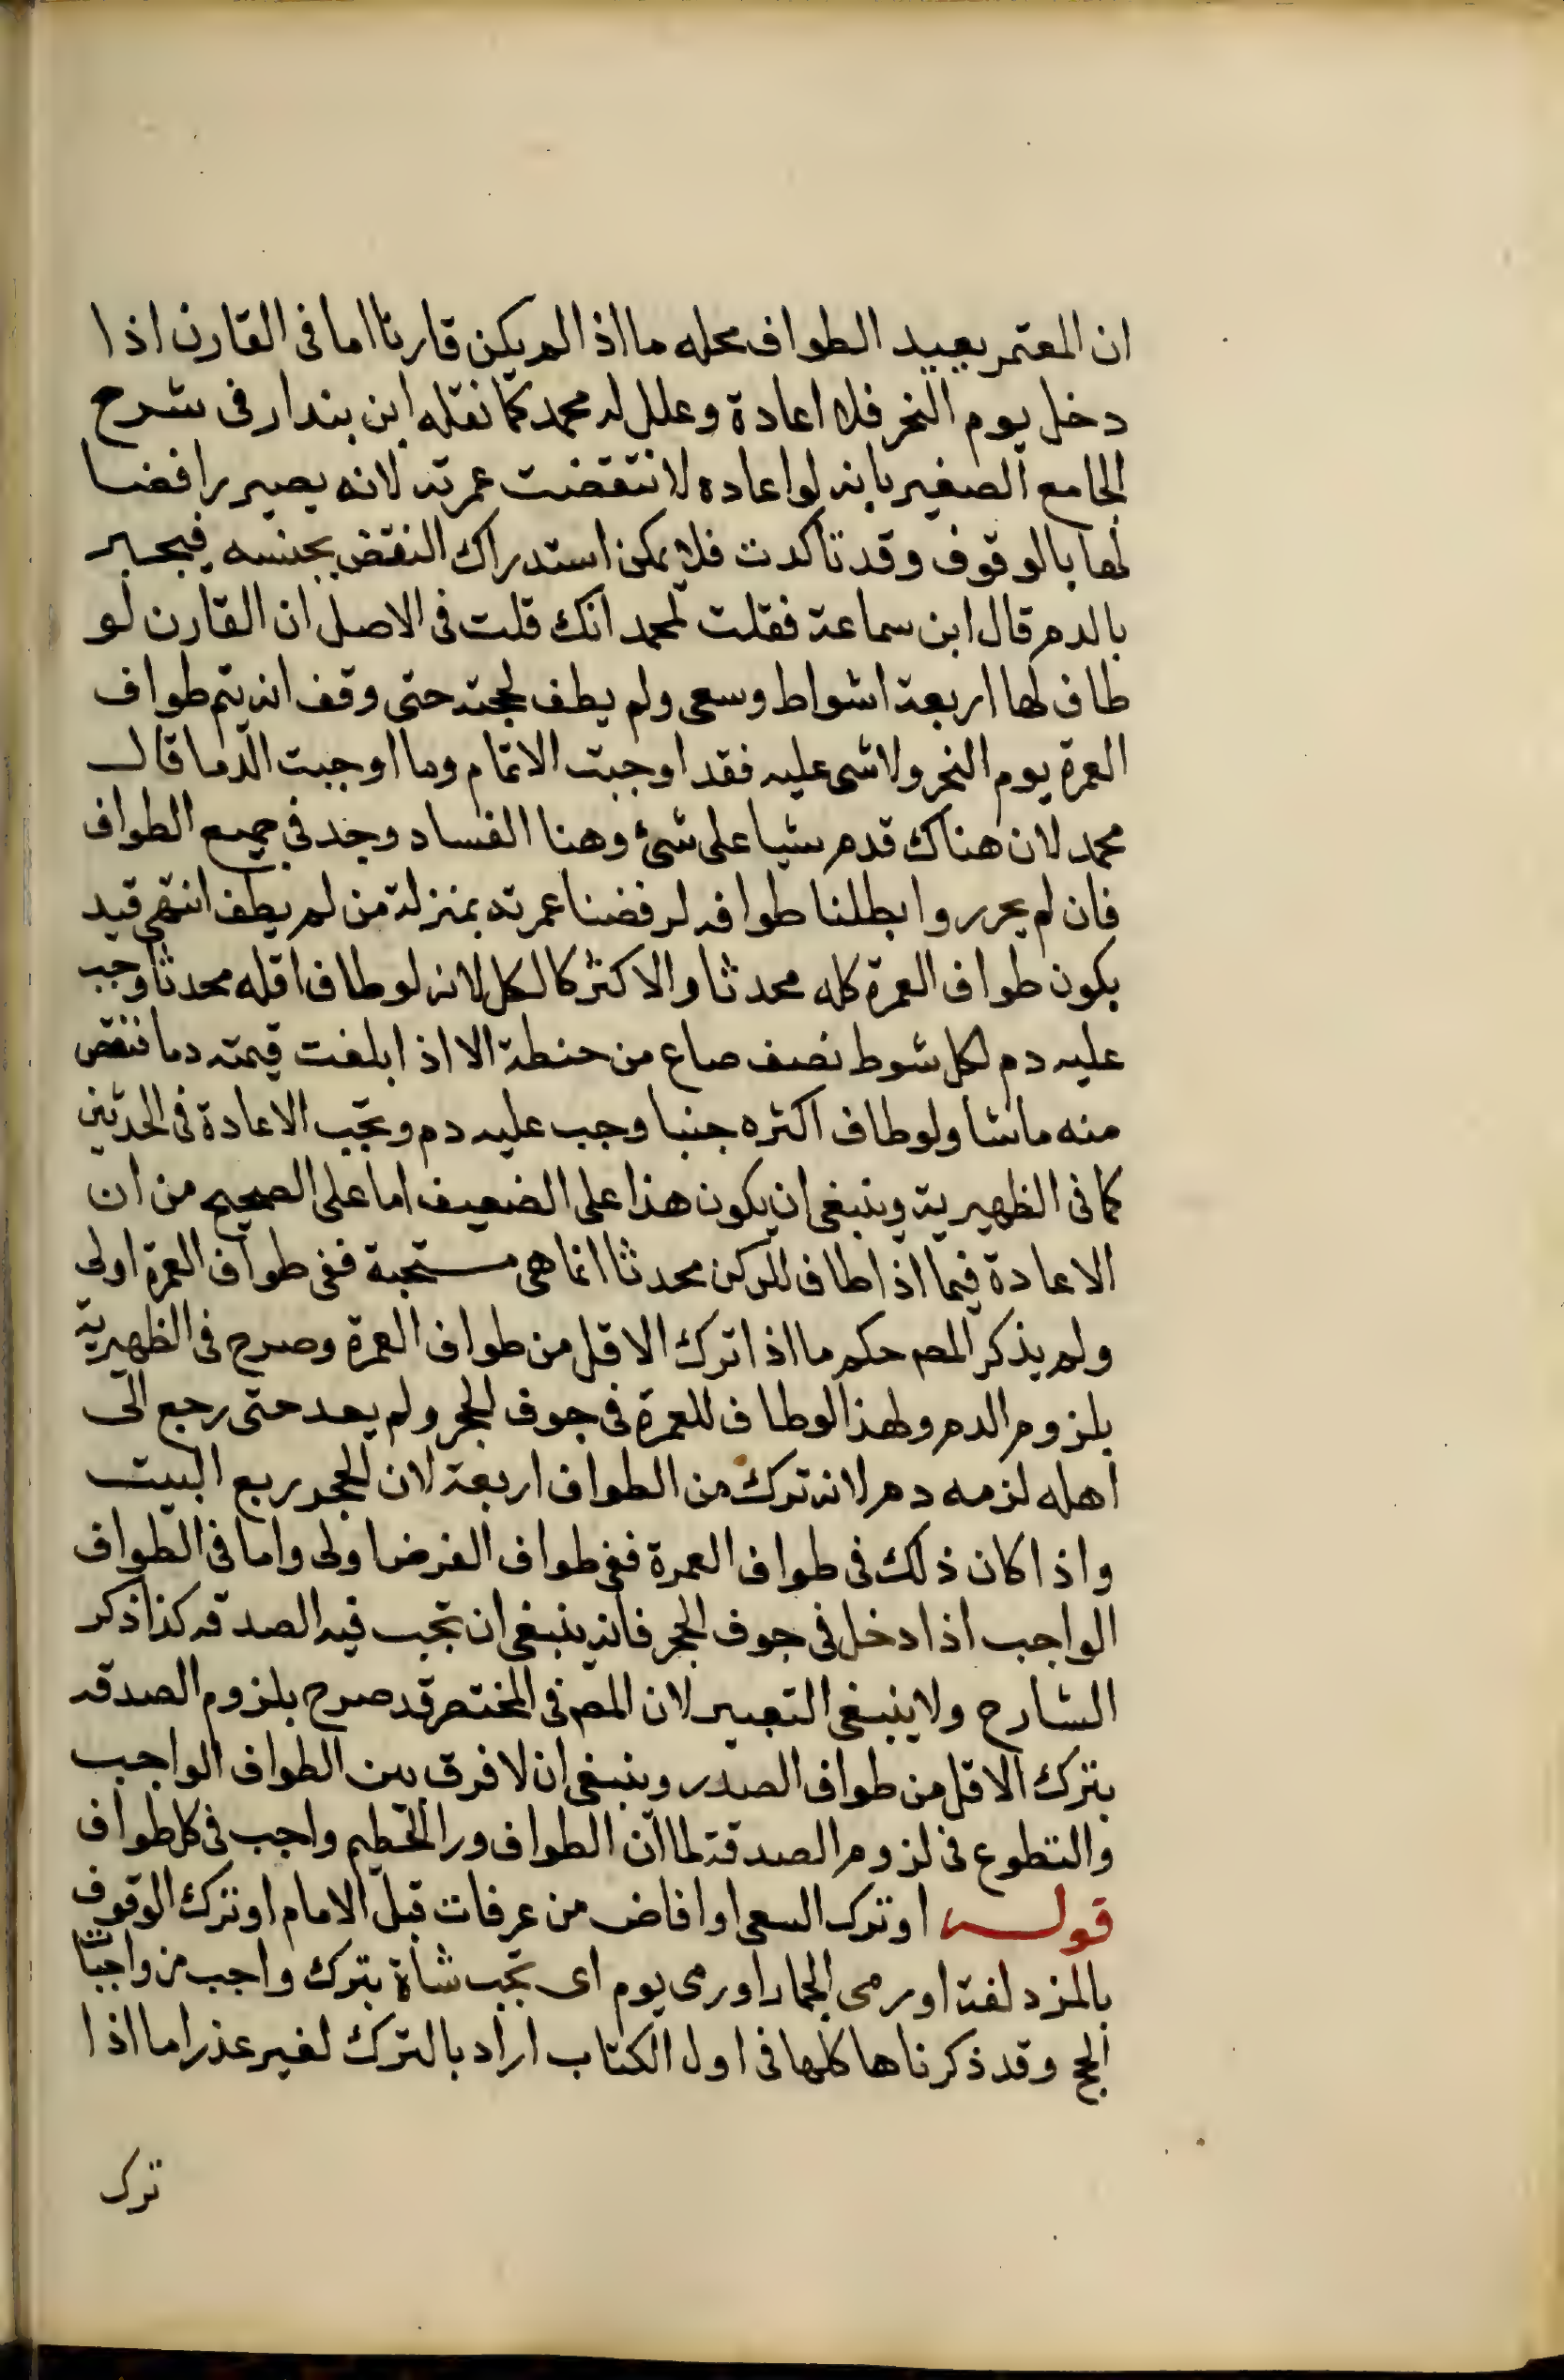 ان المعتمر يعيد الطواف محله ما اذا لم يكن قارنا اما فى القارن اذا
دخل يوم النحر فلا اعادة وعلل له محمد كما نقله ابن بندار فى شرح
الجامع الصغير بانه لو اعاده لانتقضت عمرته لانه يصير رافضا
لها بالوقوف وقد تاكدت فلا يمكن استدراك النقض بجنسه فيجبر
بالدم قال ابن سماعة فقلت لمحمد انك قلت فى الاصل ان القارن لو
طاف لها اربعة اشواط وسعى ولم يطف لحجته حتى وقف انه يتم طواف
العمرة يوم النحر ولا شى عليه فقد اوجبت الاتمام وما اوجبت الدما قال
محمد لان هناك قدم شيا على شئ وهنا الفساد وجد فى جميع الطواف
فان لم يحرر وابطلنا طوافه لرفضنا عمرته بمنزلة من لم يطف انتهى قيد
بكون طواف العمرة كله محدثا والاكثر كالكل لانه لو طاف اقله محدثا وجب
عليه دم لكل شوط نصف صاع من حنطة الا اذا بلغت قيمته دما ننقص
منه ما شا ولو طاف اكثره جنبا وجب عليه دم وتجب الاعادة فى الحدثين
كما فى الظهيرية وينبغى ان يكون هذا على الضعيف اما على الصحيح من ان
الاعادة فيما اذا طاف للركن محدثا انما هى مستحبة ففى طواف العمرة اولى
ولم يذكر المص حكم ما اذا ترك الاقل من طواف العمرة وصرح فى الظهيرية
بلزوم الدم ولهذا لو طاف للعمرة فى جوف الحجر ولم يعد حتى رجع الى
اهله لزمه دم لانه ترك من الطواف اربعة لان الحجر ربع البيت
واذا كان ذلك فى طواف العمرة ففى طواف الفرض اولى واما فى الطواف
الواجب اذا دخل فى جوف الحجر فانه ينبغى ان تجب فيه الصدقه كذا ذكر
الشارح ولا ينبغى التعبير لان المص فى المختصر قد صرح بلزوم الصدقه
بترك الاقل من طواف الصدر وينبغى ان لا فرق بين الطواف الواجب
والتطوع فى لزوم الصدقة لما ان الطواف ورا الحطيم واجب فى كل طواف
قوله او ترك السعى او افاض من عرفات قبل الامام او ترك الوقوف
بالمزدلفة او رمى الجمار او رمى يوم اى تجب شاة بترك واجب من واجبات
الحج وقد ذكرناها كلها فى اول الكتاب اراد بالترك لغير عذر اما اذا
ترك